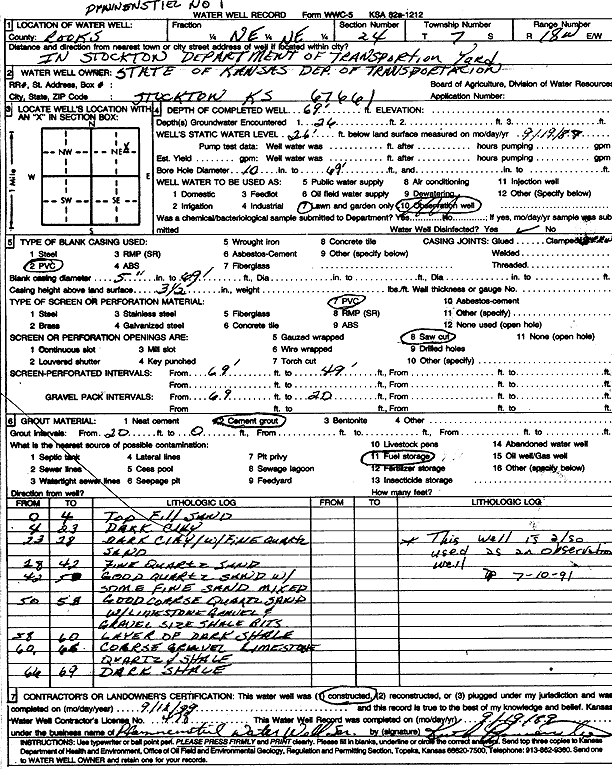 PFANNENSTIEL NO 1
WATER WELL RECORD Form WWC-5 KSA 82a-1212
1 LOCATION OF WATER WELL: Fraction Section Number Township Number Range Number
County: ROOKS ¼ NE ¼ NE ¼ 24 T 7 S R 18W E/W
Distance and direction from nearest town or city street address of well if located within city?
IN STOCKTON DEPARTMENT OF TRANSPORTION YARD
2 WATER WELL OWNER: STATE OF KANSAS DEP. OF TRANSPORTACION
RR#, St. Address, Box # : Board of Agriculture, Division of Water Resources
City, State, ZIP Code : STOCKTON KS 67661 Application Number:
3 LOCATE WELL'S LOCATION WITH AN "X" IN SECTION BOX:
N
NW NE X
W E
SW SE
S
1 Mile
4 DEPTH OF COMPLETED WELL 69' ft. ELEVATION:
Depth(s) Groundwater Encountered 1. 26 ft. 2. ft. 3.
WELL'S STATIC WATER LEVEL 26' ft. below land surface measured on mo/day/yr 9/19/88
Pump test data: Well water was ft. after hours pumping gpm
Est. Yield gpm: Well water was ft. after hours pumping gpm
Bore Hole Diameter 10 in. to 69' ft., and in. to
WELL WATER TO BE USED AS: 5 Public water supply 8 Air conditioning 11 Injection well
1 Domestic 3 Feedlot 6 Oil field water supply 9 Dewatering 12 Other (Specify below)
2 Irrigation 4 Industrial 7 Lawn and garden only 10 Observation well
Was a chemical/bacteriological sample submitted to Department? Yes No ; If yes, mo/day/yr sample was sub
mitted Water Well Disinfected? Yes ✓ No
5 TYPE OF BLANK CASING USED: 5 Wrought iron 8 Concrete tile CASING JOINTS: Glued Clamped
1 Steel 3 RMP (SR) 6 Asbestos-Cement 9 Other (specify below) Welded
2 PVC 4 ABS 7 Fiberglass Threaded
Blank casing diameter 5" in. to 49' ft., Dia in. to ft., Dia in. to
Casing height above land surface in., weight lbs./ft. Wall thickness or gauge No.
TYPE OF SCREEN OR PERFORATION MATERIAL: 7 PVC 10 Asbestos-cement
1 Steel 3 Stainless steel 5 Fiberglass 8 RMP (SR) 11 Other (specify)
2 Brass 4 Galvanized steel 6 Concrete tile 9 ABS 12 None used (open hole)
SCREEN OR PERFORATION OPENINGS ARE: 5 Gauzed wrapped 8 Saw cut 11 None (open hole)
1 Continuous slot 3 Mill slot 6 Wire wrapped 9 Drilled holes
2 Louvered shutter 4 Key punched 7 Torch cut 10 Other (specify)
SCREEN-PERFORATED INTERVALS: From 69' ft. to 49' ft., From ft. to
From ft. to ft., From ft. to
GRAVEL PACK INTERVALS: From 69 ft. to 20 ft., From ft. to
From ft. to ft., From ft. to
6 GROUT MATERIAL: 1 Neat cement 2 Cement grout 3 Bentonite 4 Other
Grout Intervals: From 20 ft. to 0 ft., From ft. to ft., From ft. to
What is the nearest source of possible contamination: 10 Livestock pens 14 Abandoned water well
1 Septic tank 4 Lateral lines 7 Pit privy 11 Fuel storage 15 Oil well/Gas well
2 Sewer lines 5 Cess pool 8 Sewage lagoon 12 Fertilizer storage 16 Other (specify below)
3 Watertight sewer lines 6 Seepage pit 9 Feedyard 13 Insecticide storage
Direction from well? How many feet?
FROM TO LITHOLOGIC LOG FROM TO LITHOLOGIC LOG
0 4 TOP FILL SAND
4 23 DARK CLAY
23 28 DARK CLAY/W/FINE QUARTZ * This well is also
SAND used as an observation
28 42 FINE QUARTZ SAND well
42 50 GOOD QUARTZ SAND W/ 7-10-91
SOME FINE SAND MIXED
50 58 GOOD CORSE QUARTZ SAND
W/LIMESTONE GRAVEL &
GRAVEL SIZE SHALE BITS
58 60 LAYER OF DARK SHALE
60 66 CORSE GRAVEL LIMESTONE
QUARTZ & SHALE
66 69 DARK SHALE
7 CONTRACTOR'S OR LANDOWNER'S CERTIFICATION: This water well was (1) constructed, (2) reconstructed, or (3) plugged under my jurisdiction and was
completed on (mo/day/year) and this record is true to the best of my knowledge and belief. Kansas
Water Well Contractor's License No. This Water Well Record was completed on (mo/day/yr) 9/19/88
under the business name of Pfannenstiel Water Well by (signature)
INSTRUCTIONS: Use typewriter or ball point pen. PLEASE PRESS FIRMLY and PRINT clearly. Please fill in blanks, underline or circle the correct answers. Send top three copies to Kansas
Department of Health and Environment, Office of Oil Field and Environmental Geology, Regulation and Permitting Section, Topeka, Kansas 66620-7500, Telephone: 913-862-9360. Send one
to WATER WELL OWNER and retain one for your records.